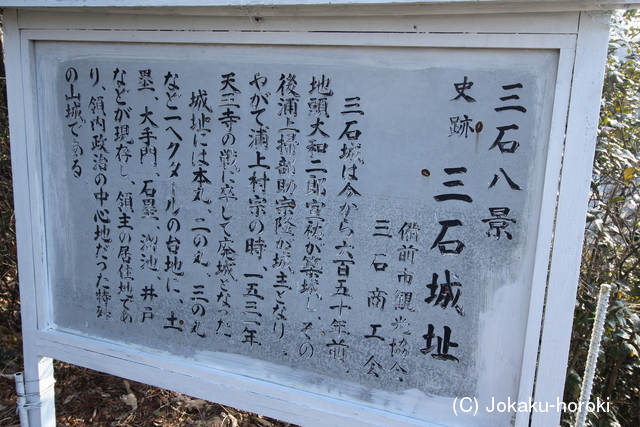 三石八景
史跡 三石城址
備前市観光協会
三石商工会
三石城は今から六百五十年前、
地頭大和二郎宣秋が築城し、その
後浦上掃部助宗隆が城主となり、
やがて浦上村宗の時 一五三一年
天王寺の戦に卒して廃城となった
城址には本丸、二の丸、三の丸
など一ヘクタールの台地に、土
塁、大手門、石塁、溜池、井戸
などが現存し、領主の居住地であ
り、領内政治の中心地だった特殊
の山城である
(C) Jokaku-horoki